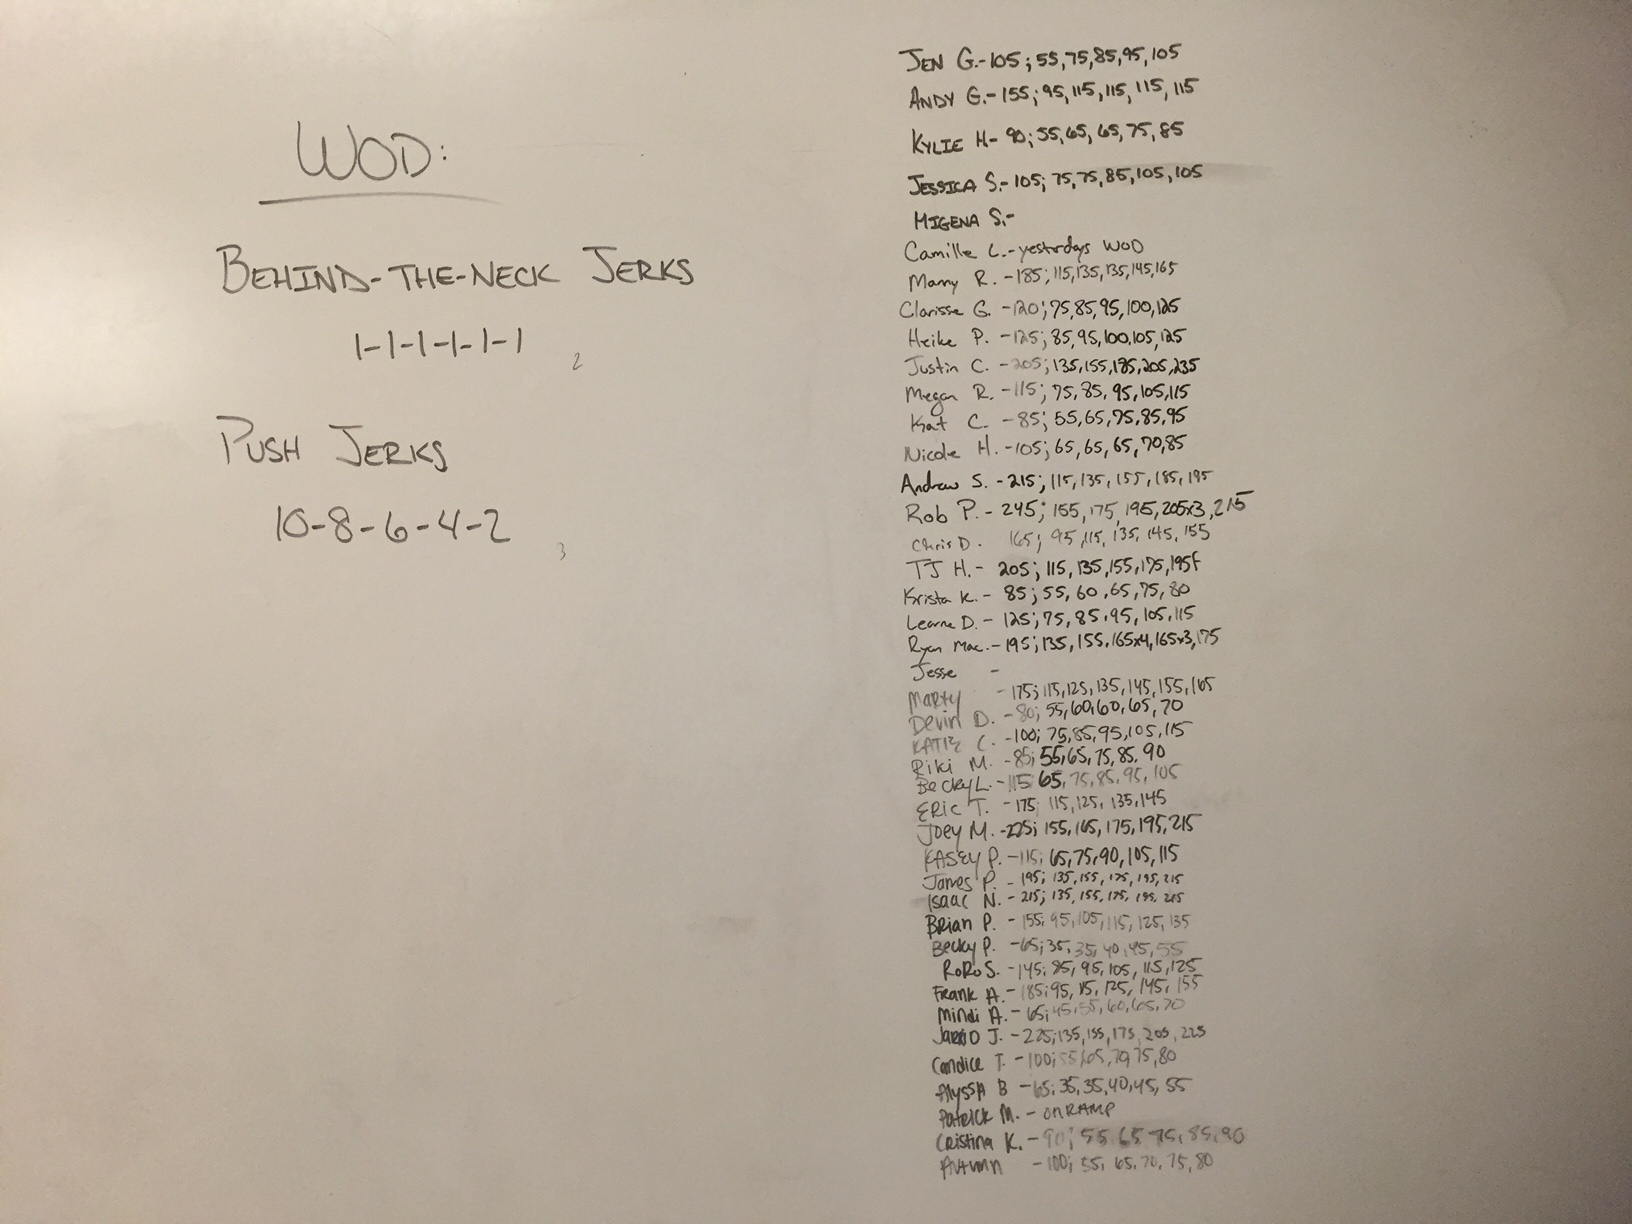 WOD:
BEHIND-THE-NECK JERKS
1-1-1-1-1-1
2
PUSH JERKS
10-8-6-4-2
3
JEN G.-105; 55, 75, 85, 95, 105
ANDY G.-155; 95, 115, 115, 115, 115
KYLIE H- 90; 55, 65, 65, 75, 85
JESSICA S.-105; 75, 75, 85, 105, 105
MIGENA S.-
Camille L.-yesterdays WOD
Manny R. -185; 115, 135, 135, 145, 165
Clarisse G. -120; 75, 85, 95, 100, 125
Heike P. -125; 85, 95, 100, 105, 125
Justin C. -205; 135, 155, 185, 205, 235
Megan R. -115; 75, 85, 95, 105, 115
Kat C. -85; 55, 65, 75, 85, 95
Nicole H. -105; 65, 65, 65, 70, 85
Andrew S. -215; 115, 135, 155, 185, 195
Rob P. - 245; 155, 175, 195, 205x3, 215
Chris D. 165; 95, 115, 135, 145, 155
TJ H. - 205; 115, 135, 155, 175, 195f
Krista K. - 85; 55, 60, 65, 75, 80
Leanne D. - 125; 75, 85, 95, 105, 115
Ryan Mac. - 195; 135, 155, 165x4, 165x3, 175
Jesse -
MARTY -175; 115, 125, 135, 145, 155, 165
Devin D. -80; 55, 60, 60, 65, 70
KATIE C. -100; 75, 85, 95, 105, 115
Riki M. -85; 55, 65, 75, 85, 90
Becky L. -115; 65, 75, 85, 95, 105
ERIC T. -175; 115, 125, 135, 145
JOEY M. -225; 155, 165, 175, 195, 215
KASEY P. -115; 65, 75, 90, 105, 115
James P. - 195; 135, 155, 175, 195, 215
ISAAC N. - 215; 135, 155, 175, 195, 215
BRIAN P. - 155; 95, 105, 115, 125, 135
Becky P. -65; 35, 35, 40, 45, 55
RORO S. -145; 85, 95, 105, 115, 125
FRANK A. -185; 95, 115, 125, 145, 155
MINDI A. - 65; 45, 55, 60, 65, 70
J. -225; 135, 155, 175, 205, 225
Candice T. -100; 55, 65, 70, 75, 80
Alyssa B -65; 35, 35, 40, 45, 55
PATRICK M. - ON RAMP
CRISTINA K. - 90; 55 65 75, 85, 90
AUTUMN -100; 55, 65, 70, 75, 80